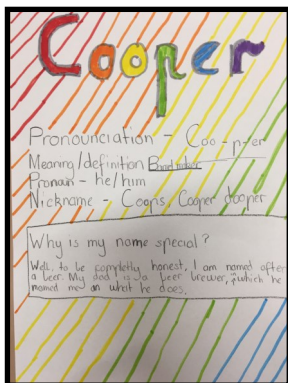 Cooper
Pronounciation - Coo-p-er
Meaning/definition Barrel maker
Pronoun - he/him
Nickname - Coops, Cooper dooper
Why is my name special?
Well, to be completly honest, I am named after
a beer. My dad is a beer brewer, which he
named me on what he does.